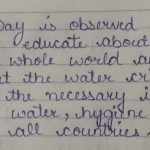 Day is observed
educate about
whole world a
t the water cr
the necessary i
water, hygiene
all countries